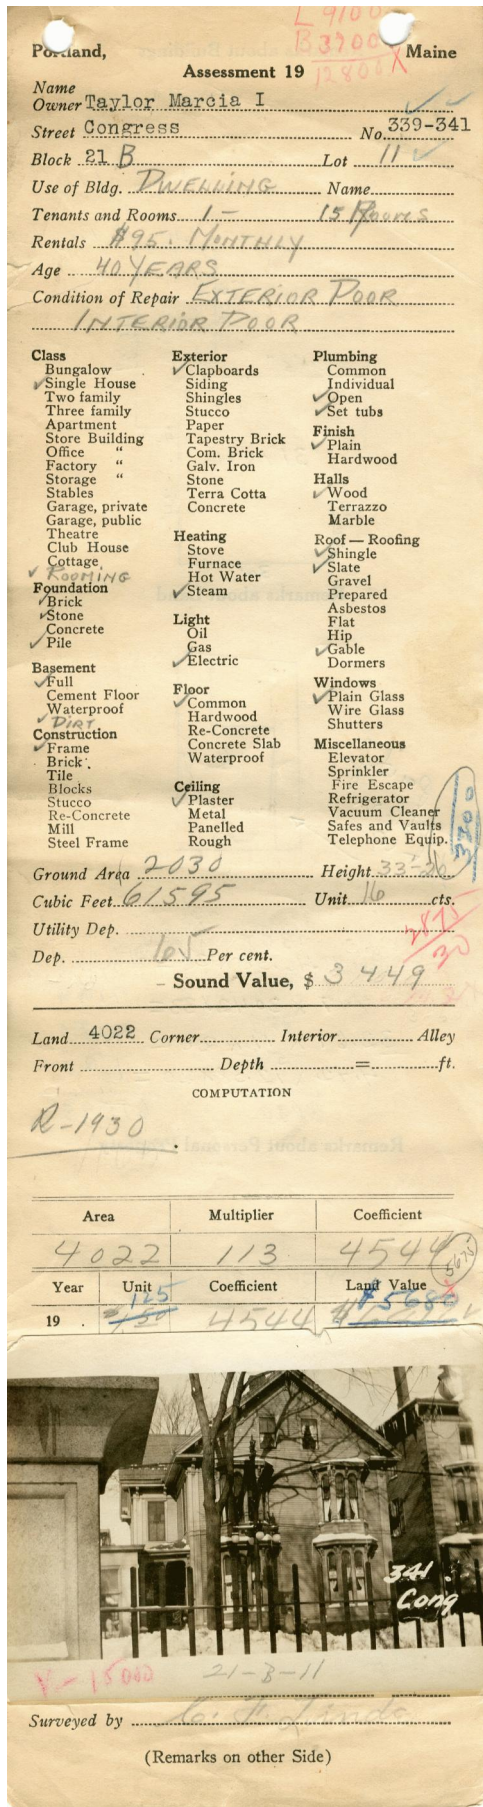 L 9100
B 3700
12800 X
Portland, Maine
Assessment 19
Name
Owner Taylor Marcia I
Street Congress No. 339-341
Block 21 B Lot 11
Use of Bldg. DWELLING Name
Tenants and Rooms 1 - 15 Rooms
Rentals $95. MONTHLY
Age 40 YEARS
Condition of Repair EXTERIOR POOR
INTERIOR POOR
Class
Bungalow
Single House
Two family
Three family
Apartment
Store Building
Office "
Factory "
Storage "
Stables
Garage, private
Garage, public
Theatre
Club House
Cottage
ROOMING
Foundation
Brick
Stone
Concrete
Pile
Basement
Full
Cement Floor
Waterproof
DIRT
Construction
Frame
Brick
Tile
Blocks
Stucco
Re-Concrete
Mill
Steel Frame
Exterior
Clapboards
Siding
Shingles
Stucco
Paper
Tapestry Brick
Com. Brick
Galv. Iron
Stone
Terra Cotta
Concrete
Heating
Stove
Furnace
Hot Water
Steam
Light
Oil
Gas
Electric
Floor
Common
Hardwood
Re-Concrete
Concrete Slab
Waterproof
Ceiling
Plaster
Metal
Panelled
Rough
Plumbing
Common
Individual
Open
Set tubs
Finish
Plain
Hardwood
Halls
Wood
Terrazzo
Marble
Roof — Roofing
Shingle
Slate
Gravel
Prepared
Asbestos
Flat
Hip
Gable
Dormers
Windows
Plain Glass
Wire Glass
Shutters
Miscellaneous
Elevator
Sprinkler
Fire Escape
Refrigerator
Vacuum Cleaner
Safes and Vaults
Telephone Equip.
3700
Ground Area 2030 Height 33'-20
Cubic Feet 61595 Unit 16 cts.
Utility Dep.
Dep. 65 Per cent.
Sound Value, $ 3449
Land 4022 Corner Interior Alley
Front Depth = ft.
COMPUTATION
R-1930
Area Multiplier Coefficient
4022 113 4544
5675
Year Unit Coefficient Land Value
125 $5680
19 4544
341
Cong
21-B-11
V-15000
Surveyed by
(Remarks on other Side)